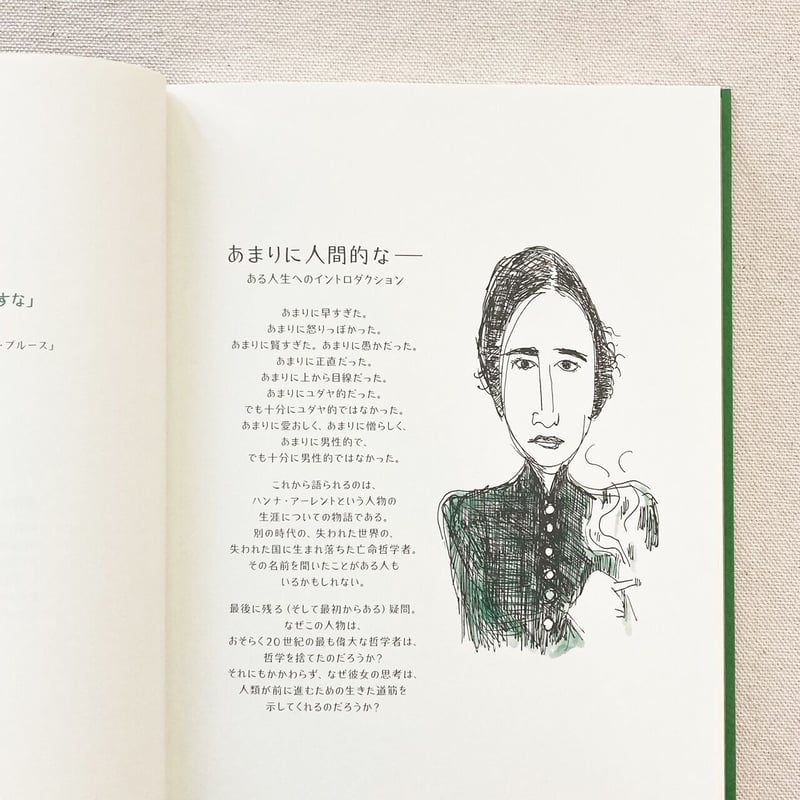 すな」
・ブルース」
あまりに人間的な――
ある人生へのイントロダクション
あまりに早すぎた。
あまりに怒りっぽかった。
あまりに賢すぎた。あまりに愚かだった。
あまりに正直だった。
あまりに上から目線だった。
あまりにユダヤ的だった。
でも十分にユダヤ的ではなかった。
あまりに愛おしく、あまりに憎らしく、
あまりに男性的で、
でも十分に男性的ではなかった。
これから語られるのは、
ハンナ・アーレントという人物の
生涯についての物語である。
別の時代の、失われた世界の、
失われた国に生まれ落ちた亡命哲学者。
その名前を聞いたことがある人も
いるかもしれない。
最後に残る(そして最初からある)疑問。
なぜこの人物は、
おそらく20世紀の最も偉大な哲学者は、
哲学を捨てたのだろうか?
それにもかかわらず、なぜ彼女の思考は、
人類が前に進むための生きた道筋を
示してくれるのだろうか?